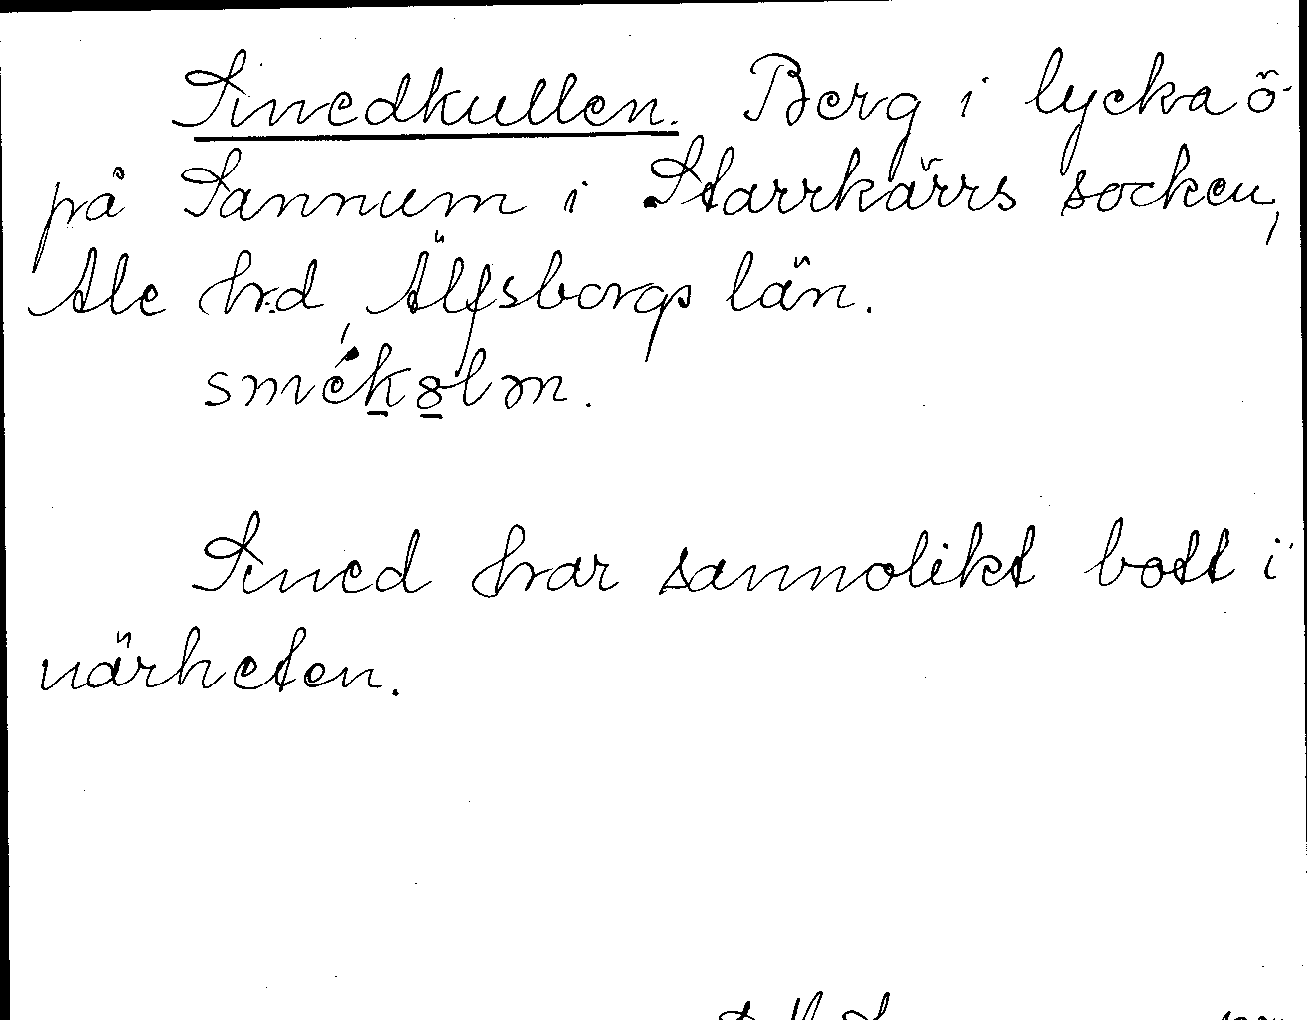 Smedkullen. Berg i lycka ö-
på Sannum i Starrkärrs socken,
Ale hrd, Älfsborgs län.
smékolm.
Smed har sannolikt bott i
närheten.